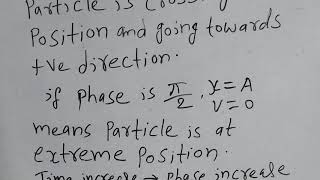 Particle is crossing
Position and going towards
+ve direction.
if phase is π/2, x=A
v=0
means Particle is at
extreme Position.
Time increase → Phase increase